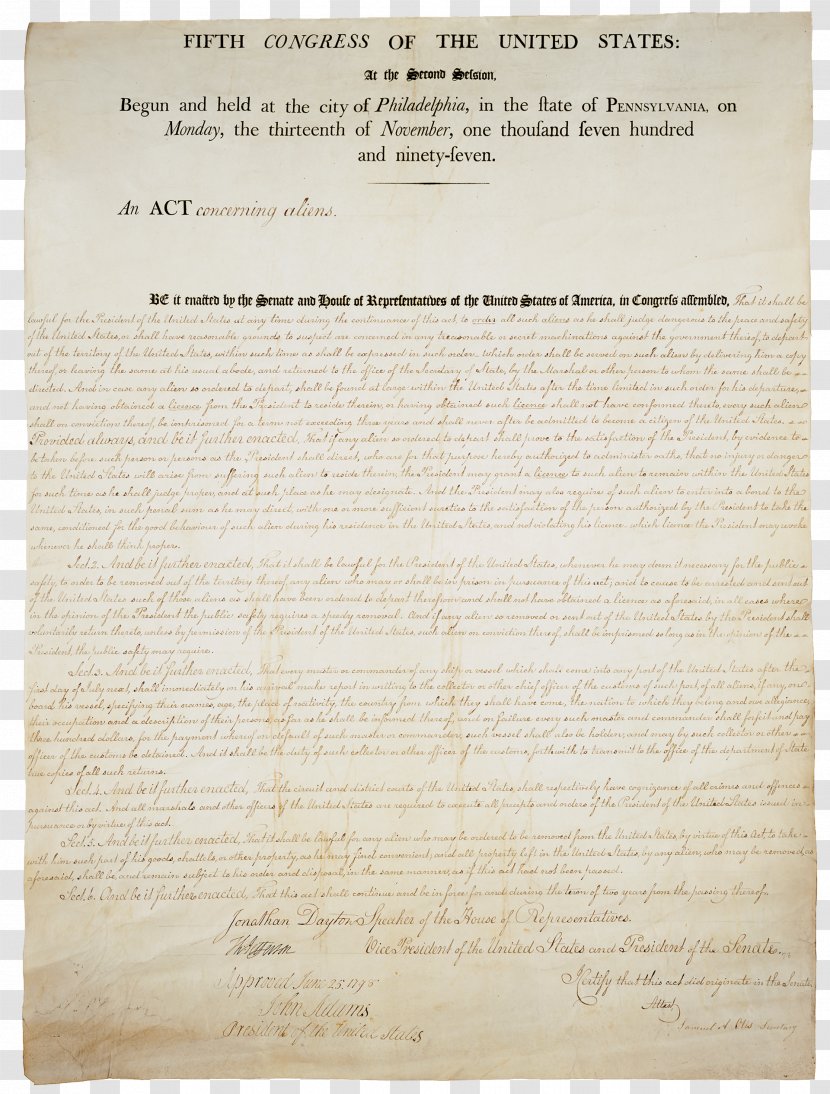 FIFTH CONGRESS OF THE UNITED STATES:
At the Second Session,
Begun and held at the city of Philadelphia, in the ſtate of PENNSYLVANIA, on
Monday, the thirteenth of November, one thouſand ſeven hundred
and ninety-ſeven.
An ACT concerning aliens.
BE it enacted by the Senate and Houſe of Repreſentatives of the United States of America, in Congreſs aſſembled, That it shall be
lawful for the President of the United States at any time during the continuance of this act, to order all such aliens as he shall judge dangerous to the peace and safety
of the United States, or shall have reasonable grounds to suspect are concerned in any treasonable or secret machinations against the government thereof, to depart
out of the territory of the United States, within such time as shall be expressed in such order which order shall be served on such alien by delivering him a copy
thereof or leaving the same at his usual abode, and returned to the office of the Secretary of State, by the Marshal or other person to whom the same shall be
directed. And in case any alien so ordered to depart, shall be found at large within the United States after the time limited in such order for his departure,
and not having obtained a licence from the President to reside therein, or having obtained such licence shall not have conformed thereto, every such alien
shall on conviction thereof, be imprisoned for a term not exceeding three years and shall never after be admitted to become a citizen of the United States.
Provided always, and be it further enacted, That if any alien so ordered to depart shall prove to the satisfaction of the President, by evidence to
be taken before such person or persons as the President shall direct, who are for that purpose hereby authorized to administer oaths, that no injury or danger
to the United States will arise from suffering such alien to reside therein, the President may grant a licence to such alien to remain within the United States
for such time as he shall judge proper, and at such place as he may designate. And the President may also require of such alien to enter into a bond to the
United States, in such penal sum as he may direct, with one or more sufficient sureties to the satisfaction of the person authorized by the President to take the
same, conditioned for the good behaviour of such alien during his residence in the United States, and not violating his licence which licence the President may revoke
whenever he shall think proper.
Sect. 2. And be it further enacted, That it shall be lawful for the President of the United States, whenever he may deem it necessary for the public
safety to order to be removed out of the territory thereof, any alien who may or shall be in prison in pursuance of this act; and to cause to be arrested and sent out
of the United States such of those aliens as shall have been ordered to depart therefrom and shall not have obtained a licence as aforesaid, in all cases where
in the opinion of the President the public safety requires a speedy removal. And if any alien so removed or sent out of the United States by the President shall
voluntarily return thereto, unless by permission of the President of the United States, such alien on conviction thereof, shall be imprisoned so long as in the opinion of the
President, the public safety may require.
Sect. 3. And be it further enacted, That every master or commander of any ship or vessel which shall come into any port of the United States after the
first day of July next, shall immediately on his arrival make report in writing to the collector or other chief officer of the customs of such port, of all aliens, if any, on
board his vessel, specifying their names, age, the place of nativity, the country from which they shall have come, the nation to which they belong and owe allegiance,
their occupation and a description of their persons, as far as he shall be informed thereof, and on failure every such master and commander shall forfeit and pay
three hundred dollars, for the payment whereof on default of such master or commander, such vessel shall also be holden, and may by such collector or other
officer of the customs be detained. And it shall be the duty of such collector or other officer of the customs, forthwith to transmit to the office of the department of State
true copies of all such returns.
Sect. 4. And be it further enacted, That the circuit and district courts of the United States, shall respectively have cognizance of all crimes and offences
against this act. And all marshals and other officers of the United States are required to execute all precepts and orders of the President of the United States issued in
pursuance or by virtue of this act.
Sect. 5. And be it further enacted, That it shall be lawful for any alien who may be ordered to be removed from the United States, by virtue of this Act, to take
with him such part of his goods, chattels, or other property, as he may find convenient; and all property left in the United States, by any alien, who may be removed, as
aforesaid, shall be and remain subject to his order and disposal, in the same manner, as if this act had not been passed.
Sect. 6. And be it further enacted, That this act shall continue and be in force for and during the term of two years from the passing thereof.
Jonathan Dayton Speaker of the House of Representatives.
Th Jefferson Vice President of the United States and President of the Senate.
Approved June 25. 1798
I Certify that this act did originate in the Senate,
John Adams
Attest,
President of the United States
Samuel A. Otis Secretary